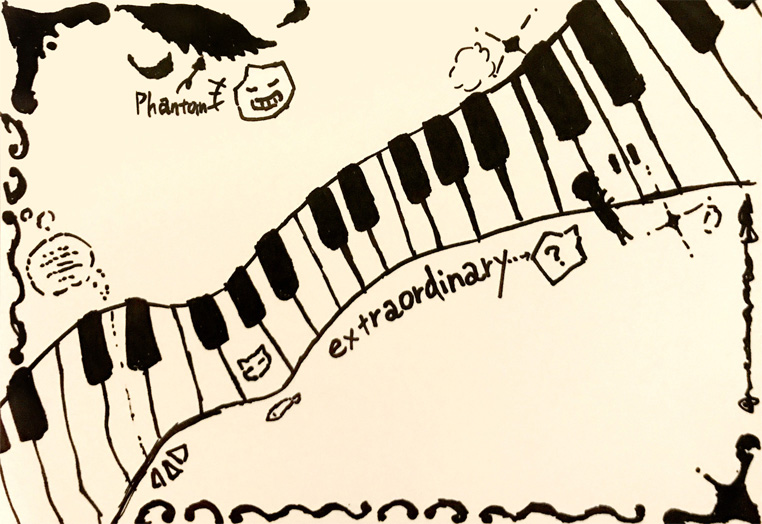 Phantom
extraordinary
?